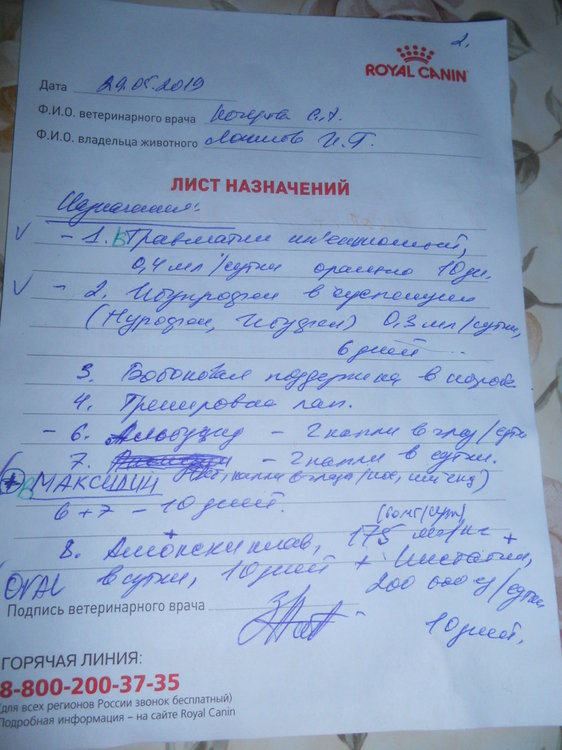 2.
ROYAL CANIN
Дата 29.05.2019
Ф.И.О. ветеринарного врача С.А.
Ф.И.О. владельца животного И.Г.
ЛИСТ НАЗНАЧЕНИЙ
Назначения:
V - 1. Травматин инъекционный,
0,4 мл/сутки орально 10 дн.
V - 2. Ибупрофен в суспензии
(Нурофен, Ибуфен) 0,3 мл/сутки,
6 дней
3. Боковая поддержка в коробе.
4. Тренировка лап.
- 6. - 2 капли в глаз/сутки
7. - 2 капли в сутки.
+ В МАКСИДИН
6+7 - 10 дней.
8. Амоксиклав, 175 мг/кг +
ORAL в сутки, 10 дней + Нистатин,
200 000 ед/сутки
10 дней.
Подпись ветеринарного врача
ГОРЯЧАЯ ЛИНИЯ:
8-800-200-37-35
(для всех регионов России звонок бесплатный)
Подробная информация – на сайте Royal Canin